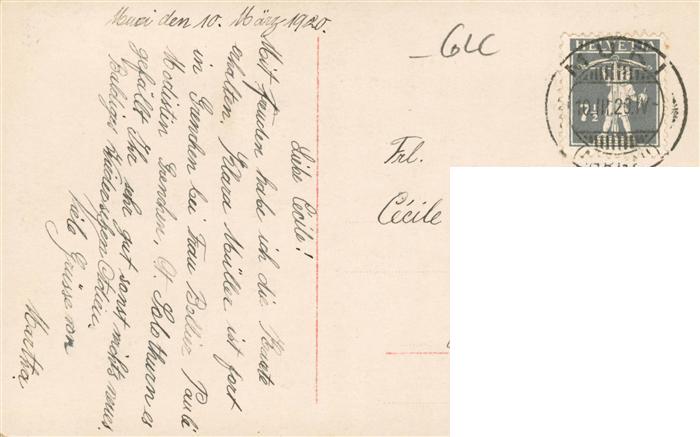 Muri den 10. März 1920.
Liebe Cécile!
Mit freuden habe ich die Karte
erhalten, Klara Müller ist fort
in Grenchen bei Frau
Modistin Grenchen, Ct. Solothurn es
gefällt Ihr sehr gut sonst nichts neues.
Baldiges Wiedersehen Adieu.
Viele Grüsse von
Martha.
Frl.
Cécile
HELVETIA
7½
MURI
10.III.20.IV